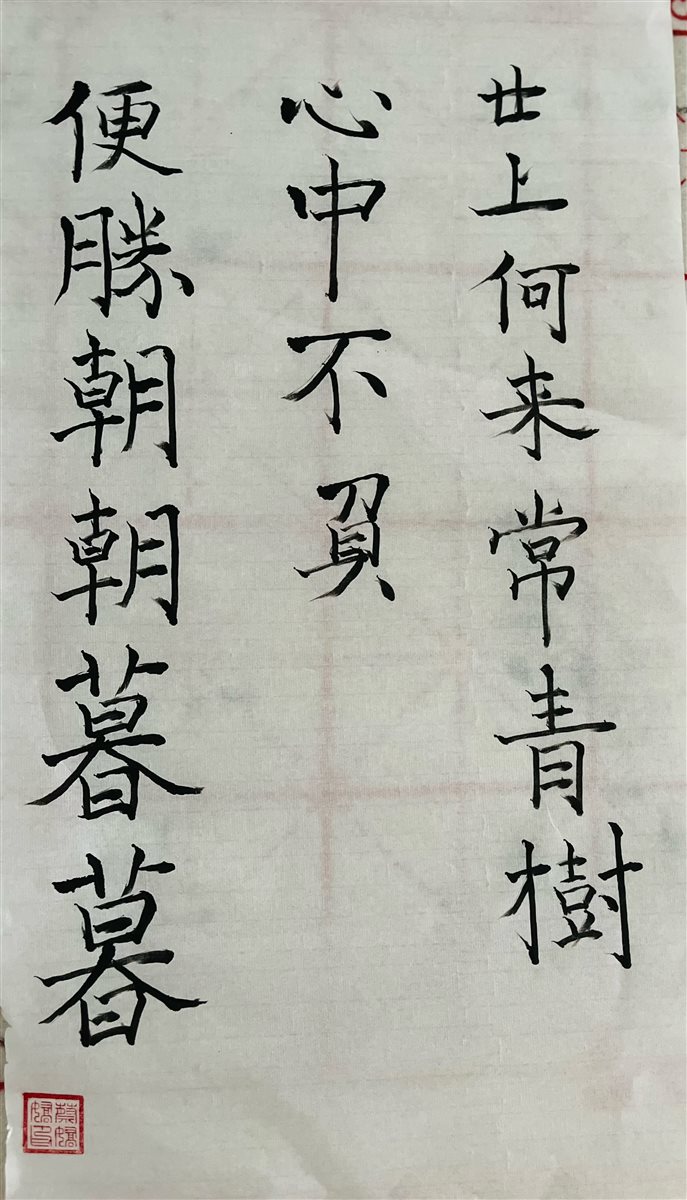 世上何来常青樹
心中不負
便勝朝朝暮暮